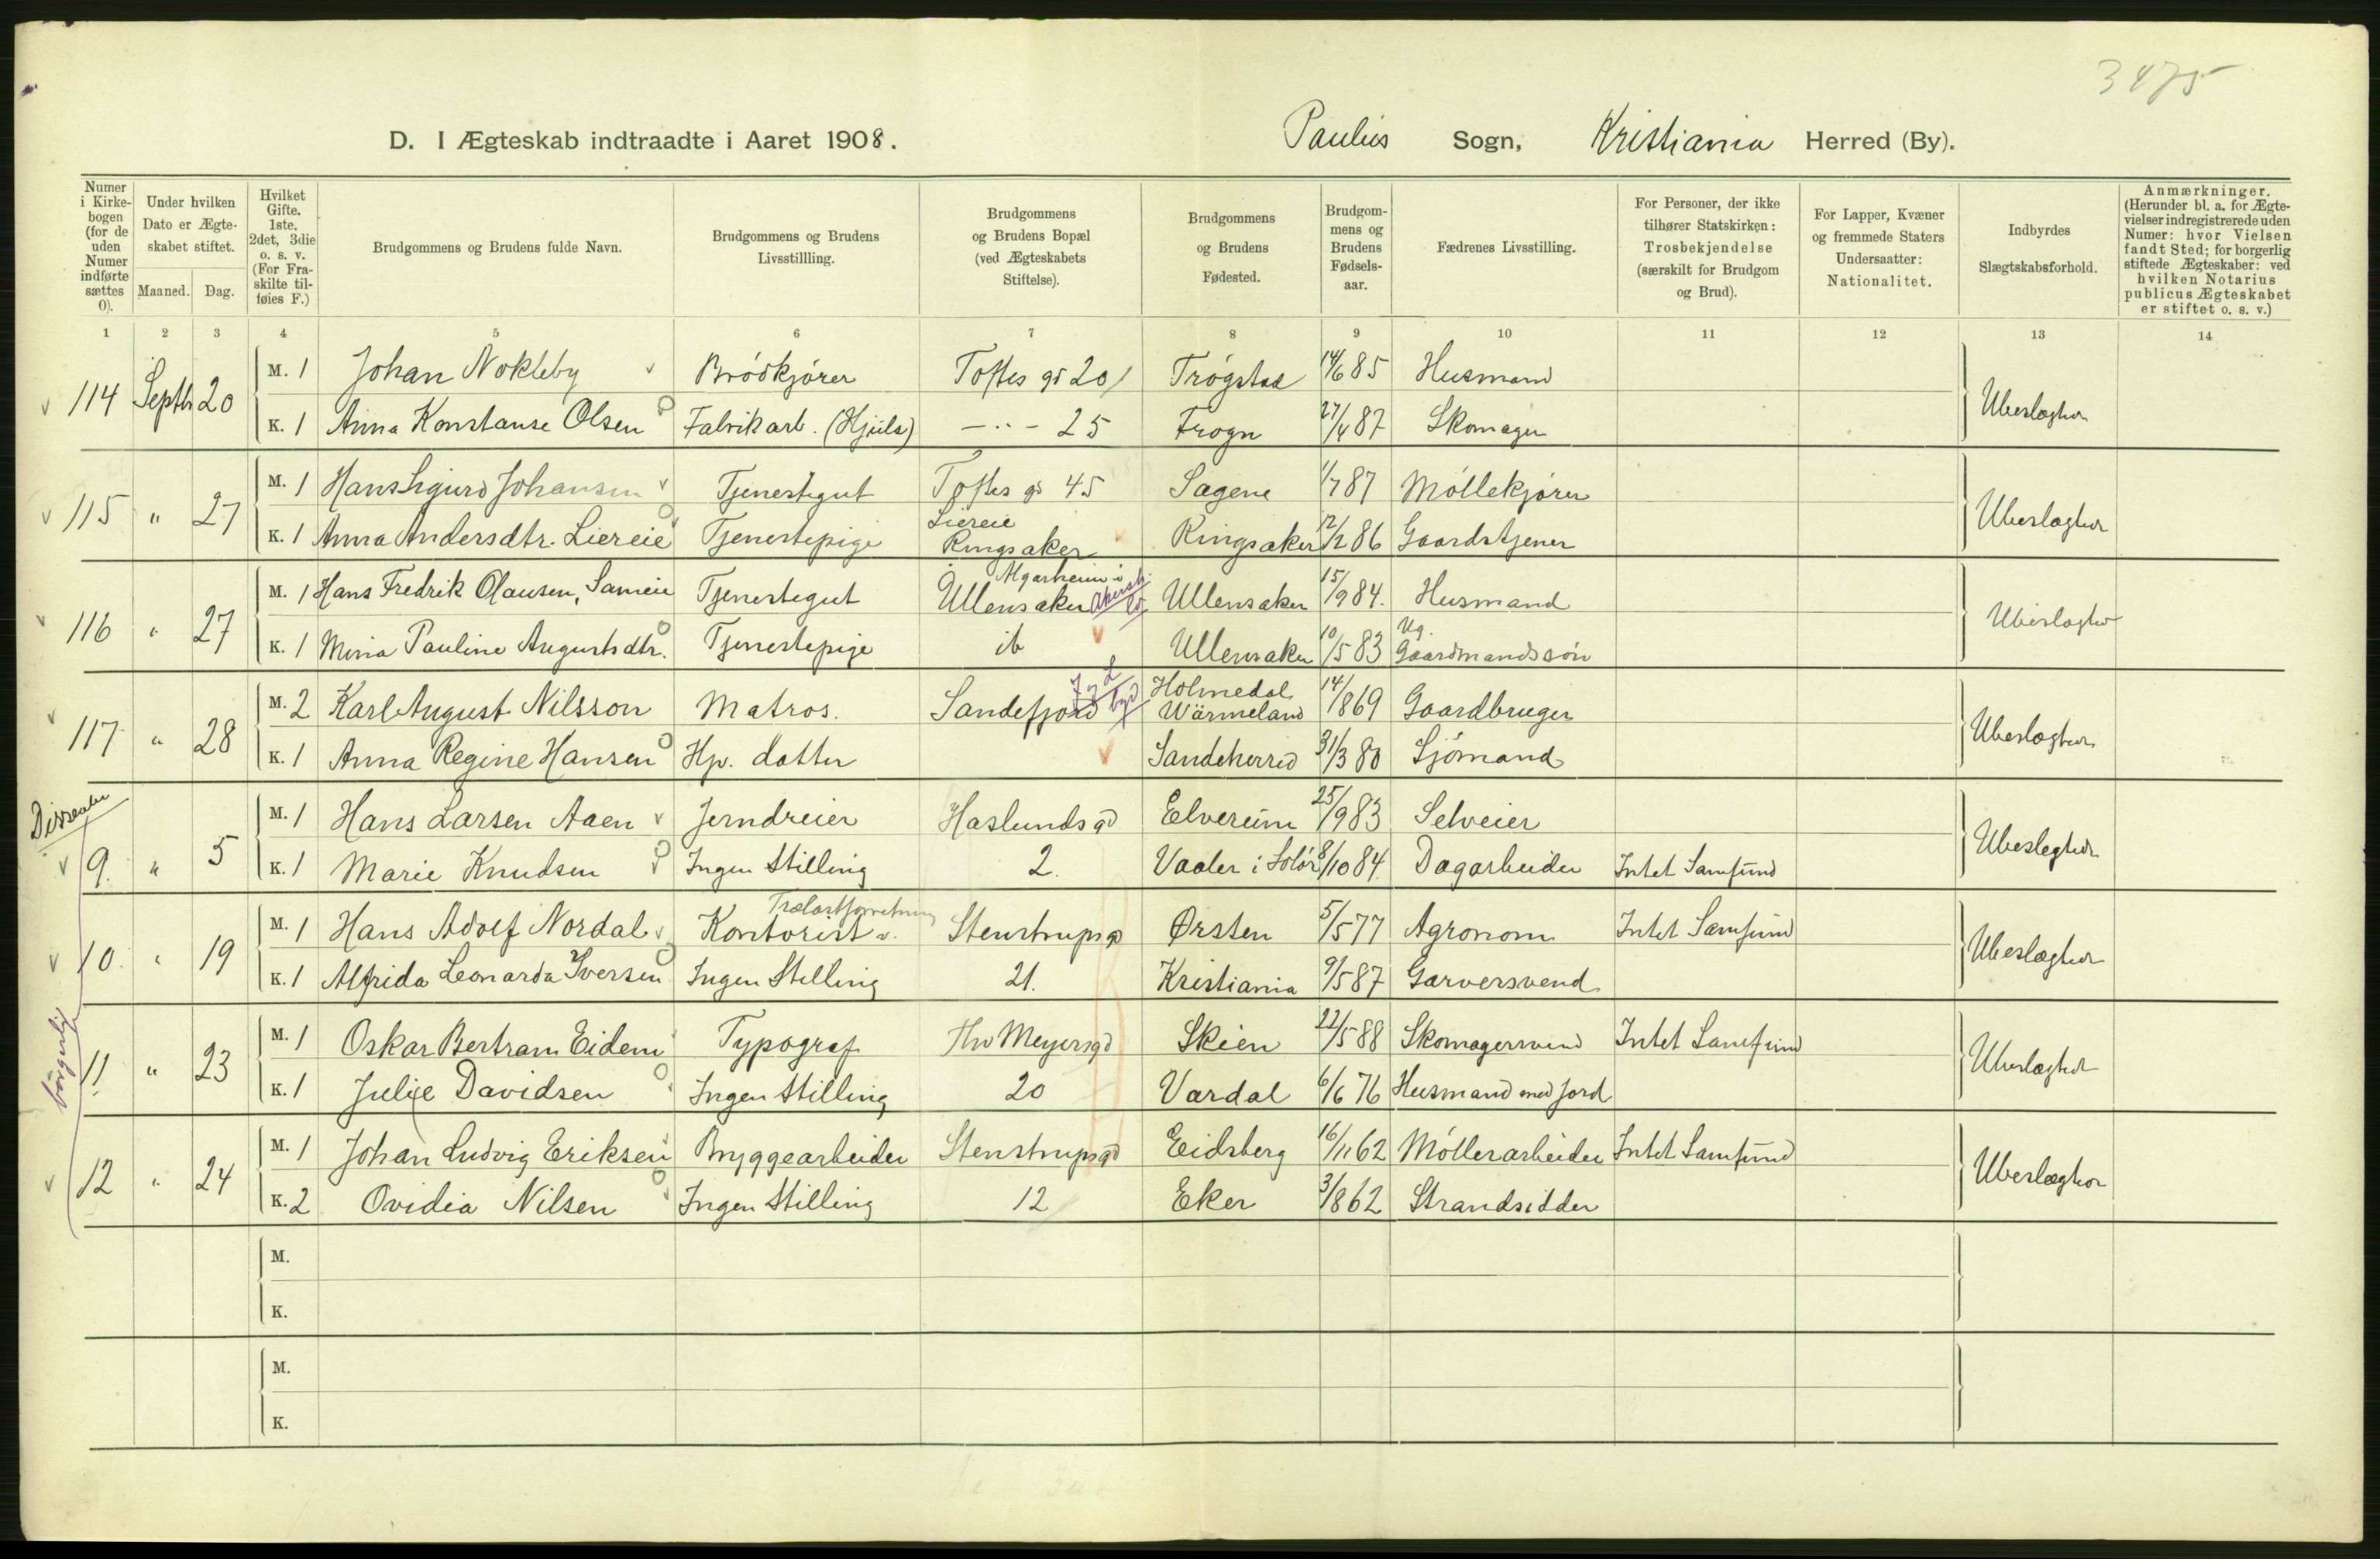 3475
D. I Ægteskab indtraadte i Aaret 1908. Paulus Sogn, Kristiania Herred (By).
Numer i Kirkebogen (for de uden Numer indførte sættes 0).
Under hvilken Dato er Ægteskabet stiftet.
Maaned. Dag.
Hvilket Gifte. 1ste, 2det, 3die o. s. v. (For Fraskilte tilføies F.)
Brudgommens og Brudens fulde Navn.
Brudgommens og Brudens Livsstillling.
Brudgommens og Brudens Bopæl (ved Ægteskabets Stiftelse).
Brudgommens og Brudens Fødested.
Brudgommens og Brudens Fødselsaar.
Fædrenes Livsstilling.
For Personer, der ikke tilhører Statskirken: Trosbekjendelse (særskilt for Brudgom og Brud).
For Lapper, Kvæner og fremmede Staters Undersaatter: Nationalitet.
Indbyrdes Slægtskabsforhold.
Anmærkninger. (Herunder bl. a. for Ægtevielser indregistrerede uden Numer: hvor Vielsen fandt Sted; for borgerlig stiftede Ægteskaber: ved hvilken Notarius publicus Ægteskabet er stiftet o. s. v.)
1 2 3 4 5 6 7 8 9 10 11 12 13 14
114 Septb 20 M. 1 Johan Nokleby Brödkjörer Toftes gd 20 Trögstad 14/6 85 Husmand Ubeslægtede
K. 1 Anna Konstanse Olsen Fabrikarb. (Hjula) —"— 25 Frogn 27/4 87 Skomager
115 " 27 M. 1 Hans Sigurd Johansen Tjenestegut Toftes gd 45 Sagene 1/7 87 Möllekjörer Ubeslægtede
K. 1 Anna Andersdtr. Liereie Tjenestepige Liereie Ringsaker Ringsaker 12/2 86 Gaardstjener
116 " 27 M. 1 Hans Fredrik Olausen, Sameie Tjenestegut Algarheim i Ullensaker Ullensaker 15/9 84. Husmand Ubeslægtede
K. 1 Mina Pauline Augustsdtr. Tjenestepige ib Ullensaker 10/5 83 Ug. Gaardmandssön
117 " 28 M. 2 Karl August Nilsson Matros. Sandefjord Holmedal Wärmeland 14/8 69 Gaardbruger Ubeslægtede
K. 1 Anna Regine Hansen Hp. datter Sandeherred 31/3 80 Sjömand
Dissenter
9. " 5 M. 1 Hans Larsen Aaen Jerndreier Haslunds gd Elverum 25/9 83 Selveier Ubeslegtede
K. 1 Marie Knudsen Ingen Stilling 2. Vaaler i Solör 8/10 84. Dagarbeider Intet Samfund
10. " 19 M. 1 Hans Adolf Nordal Kontorist v. Trælastforretning Stenstrupsgd Ørsten 5/5 77 Agronom Intet Samfund Ubeslægtede
K. 1 Alfrida Leonarda Iversen Ingen Stilling 21. Kristiania 9/5 87 Garversvend
borgerlig
11. " 23 M. 1 Oskar Bertram Eidem Typograf Thv Meyersgd Skien 22/5 88 Skomagersvend Intet Samfund Ubeslægtede
K. 1 Julie Davidsen Ingen Stilling 20 Vardal 6/6 76 Husmand med Jord
12 " 24 M. 1 Johan Ludvig Eriksen Bryggearbeider Stenstrupsgd Eidsberg 16/11 62 Möllerarbeider Intet Samfund Ubeslægtede
K. 2 Ovidia Nilsen Ingen Stilling 12 Eker 3/8 62 Strandsidder
M.
K.
M.
K.